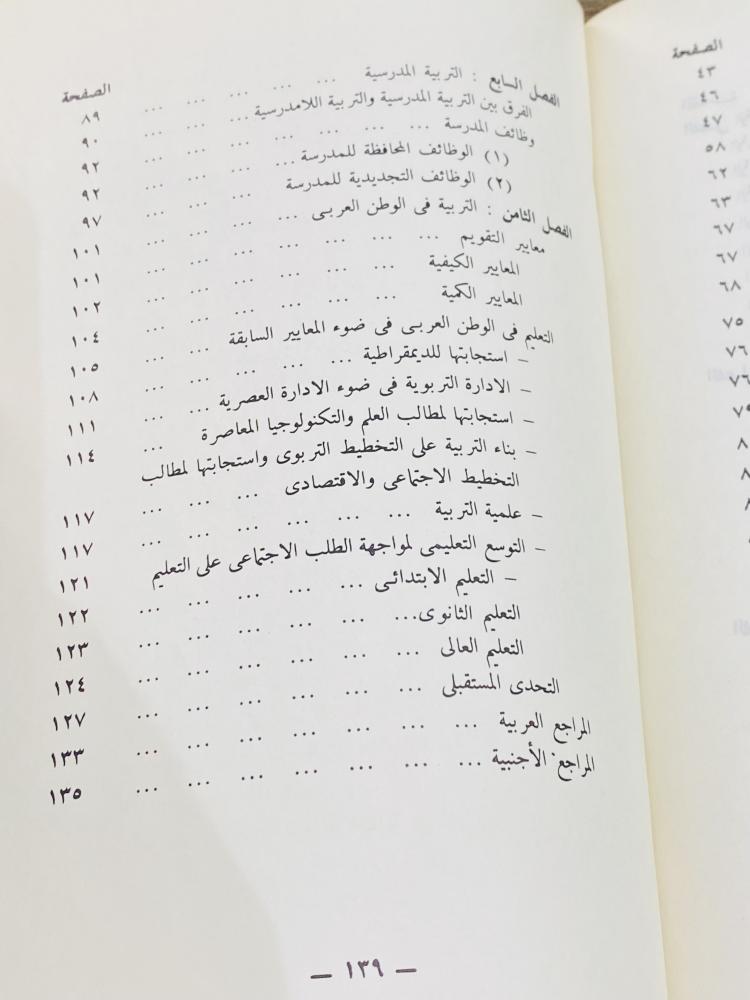 الصفحة
٤٣
٤٦
٤٧
٥٨
٦٢
٦٣
٦٧
٦٧
٦٨
٧٥
٧٦
٧٦
الصفحة
الفصل السابع : التربية المدرسية ... ... ... ... ... ... ٨٩
الفرق بين التربية المدرسية والتربية اللامدرسية ... ... ... ٩٠
وظائف المدرسة ... ... ... ... ... ... ... ٩٢
(١) الوظائف المحافظة للمدرسة ... ... ... ... ٩٢
(٢) الوظائف التجديدية للمدرسة ... ... ... ... ٩٧
الفصل الثامن : التربية فى الوطن العربى ... ... ... ... ١٠١
معايير التقويم ... ... ... ... ... ... ... ١٠١
المعايير الكيفية ... ... ... ... ... ... ١٠٢
المعايير الكمية ... ... ... ... ... ... ١٠٤
التعليم فى الوطن العربى فى ضوء المعايير السابقة ... ... ١٠٥
– استجابتها للديمقراطية ... ... ... ... ... ١٠٨
– الادارة التربوية فى ضوء الادارة العصرية ... ... ... ١١١
– استجابتها لمطالب العلم والتكنولوجيا المعاصرة ... ١١٤
– بناء التربية على التخطيط التربوى واستجابتها لمطالب
التخطيط الاجتماعى والاقتصادى ... ... ... ... ١١٧
– علمية التربية ... ... ... ... ... ... ١١٧
– التوسع التعليمى لمواجهة الطلب الاجتماعى على التعليم ١٢١
– التعليم الابتدائى ... ... ... ... ... ... ١٢٢
التعليم الثانوى ... ... ... ... ... ... ١٢٣
التعليم العالى ... ... ... ... ... ... ١٢٤
التحدى المستقبلى ... ... ... ... ... ... ١٢٧
المراجع العربية ... ... ... ... ... ... ... ١٣٣
المراجع الأجنبية ... ... ... ... ... ... ... ١٣٥
— ١٣٩ —